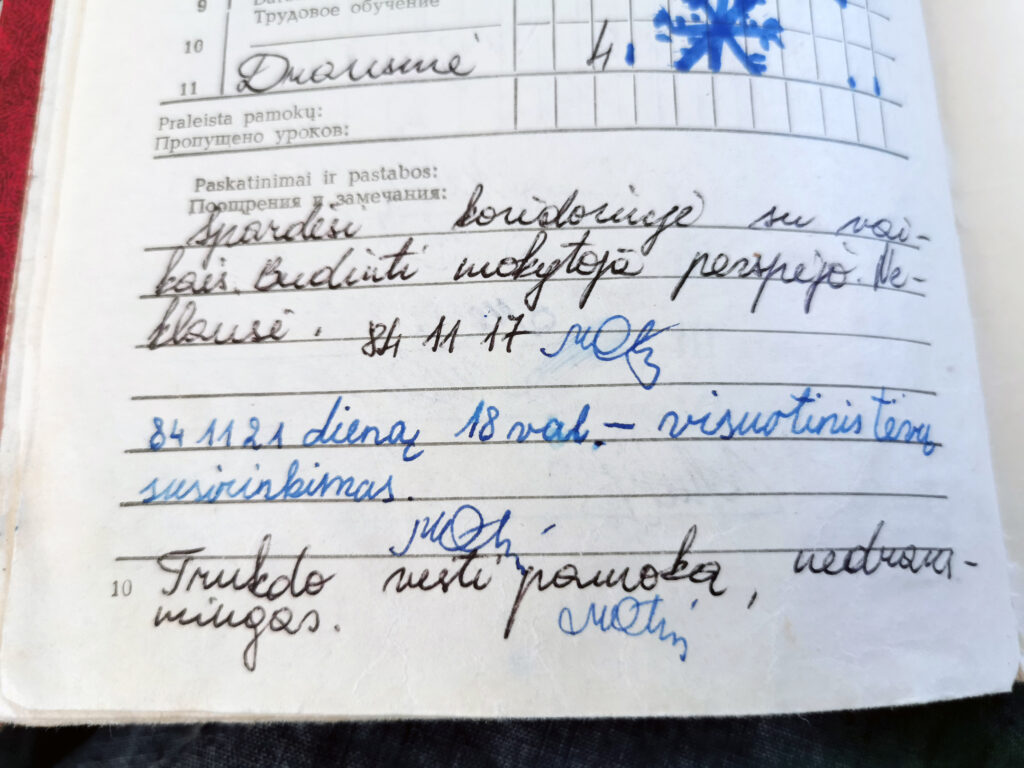 9
Трудовое обучение
10
Drausmė 4.
11
Praleista pamokų:
Пропущено уроков:
Paskatinimai ir pastabos:
Поощрения и замечания:
Spardėsi koridoriuje su vai-
kais. Budinti mokytoja perspėjo. Ne-
klausė. 84 11 17
84 11 21 dieną 18 val. – visuotinis tėvų
susirinkimas.
Trukdo vesti pamoką, nedraus-
10
mingas.